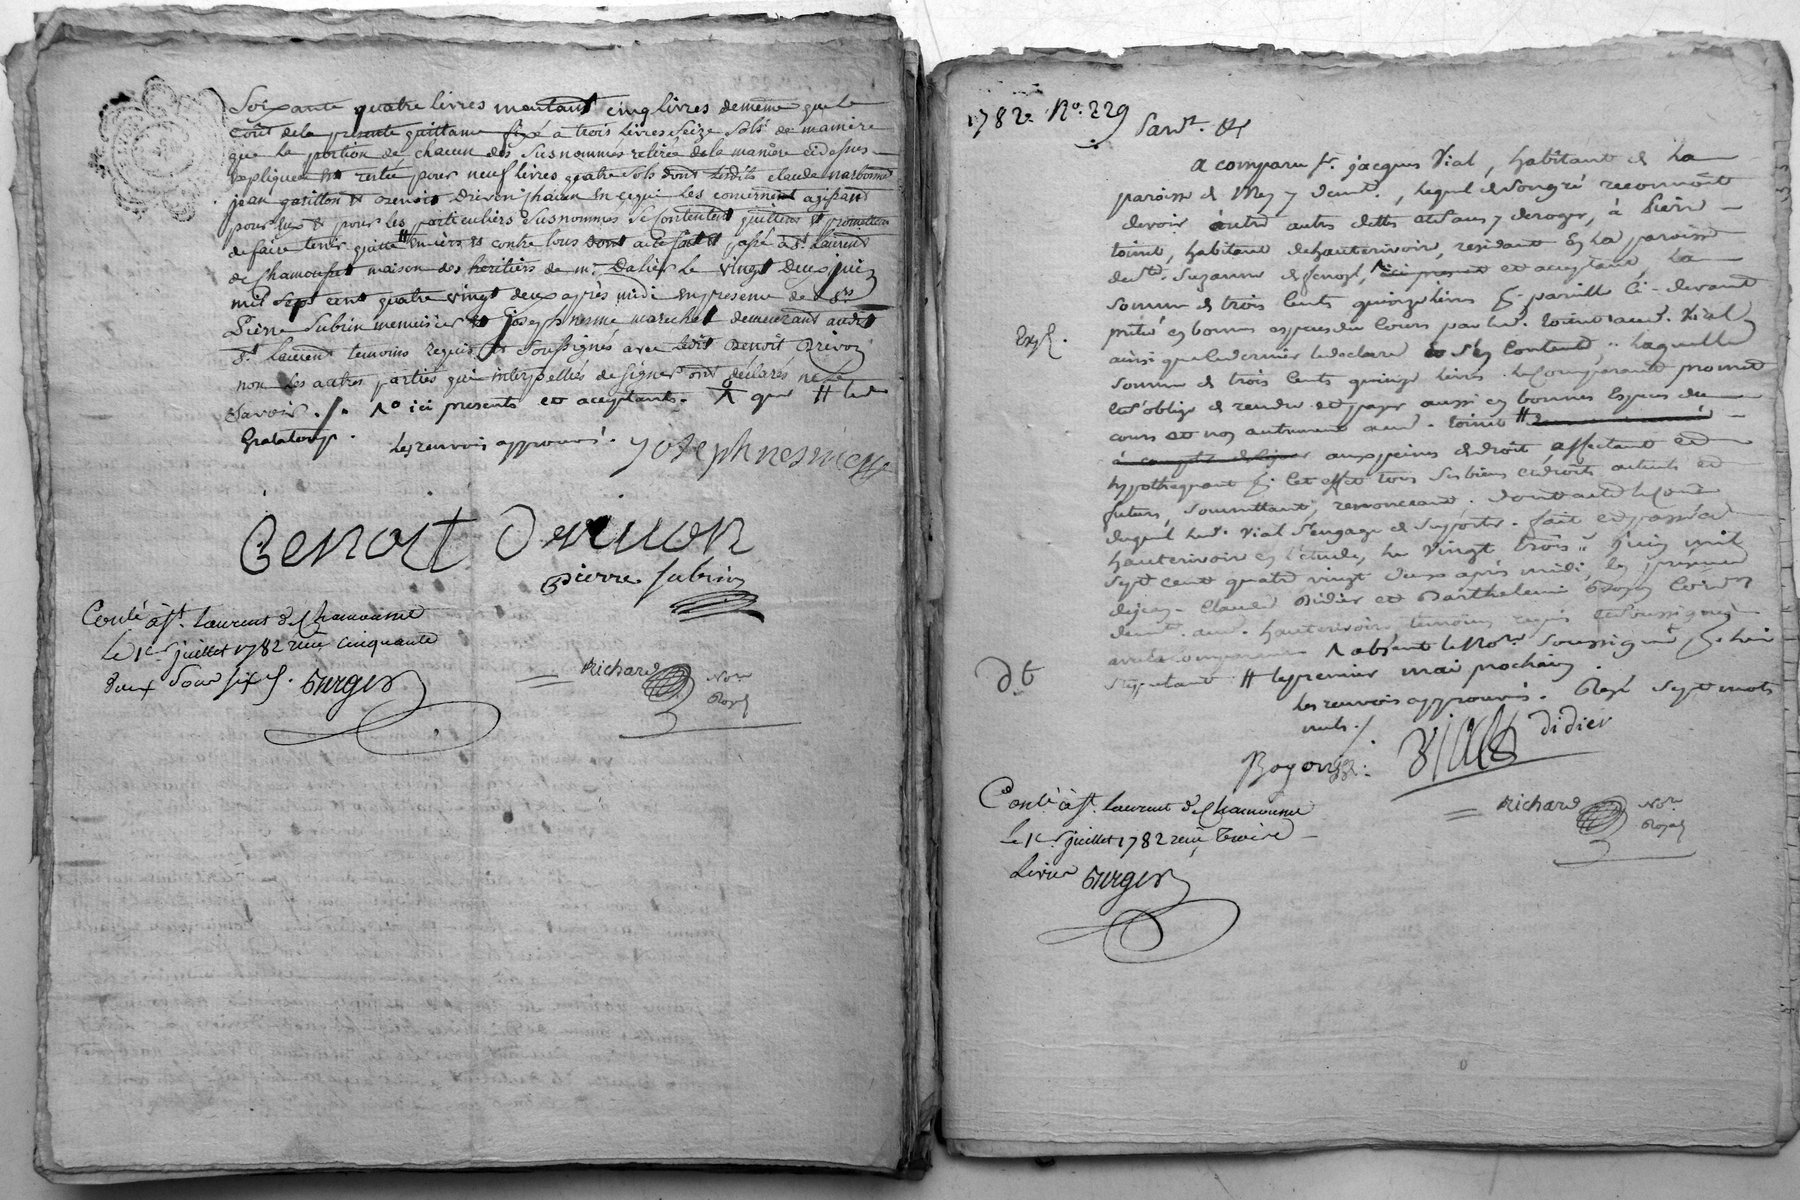 Soixante quatre livres montant cinq livres de meme que le
cout de la presente quittance fixé à trois livres seize sols de maniere
que la portion de chacun des susnommés retirée de la maniere cidessus
expliquée est restée pour neuf livres quatre sols dont lesdits claude narbonne
jean gatillon et benoit drevon chacun en ce qui les concernent agissant
pour eux et pour les particuliers susnommes se contentent quittent et promettent
de faire tenir quitte # envers et contre tous dont acte fait et passé a St. laurent
de Chamousset maison des heritiers de mr. Dalier le vingt deux juin
mil sept cent quatre vingt deux après midi en presence de Srs
Pierre Subrin menuisier et joseph nesme marechal demeurant audit
St. laurent temoins requis et soussignés avec ledit Benoît Drevon
non les autres parties qui interpellées de signer ont déclarés ne le
Savoir ./. ici presents et acceptants. que # led
Grataloup.
les renvois approuvés. joseph nesme
Benoit Derivon
pierre subrin
Conlé à St. laurent de Chamousset
le 1er. juillet 1782 reçu cinquante
deux sous six d. Burger
Richard Nore
Royal
1782. No. 229
Pardt. &c
a comparu Sr. jacques Vial, habitant de la
paroisse de Meys, lequel de son gré reconnoît
devoir outre autres dettes et sans y deroger, à Pierre
toinet, habitant de hauterivoire, residant en la paroisse
de Ste. Suzanne, ici present et acceptant, la
somme de trois cents quinze livres pr. pareille ci-devant
preté en bonnes especes du cours par led. toinet aud. Vial
Exp.
ainsi que le dernier le declare et s'en contente, laquelle
somme de trois cents quinze livres le comparant promet
et s'oblige de rendre et payer aussi en bonnes especes du
cours et non autrement aud. toinet #
aux peines de droit, affectant et
hypothequant pr. cet effet tous ses biens et droits actuels et
futurs, soumettant, renonceant. dont acte
duquel led. Vial s'engage de supporter. fait et passé a
hauterivoire en l'étude, le vingt trois juin mil
sept cent quatre vingt deux après midi, en presence
de Claude Didier et Barthelemi Bogon
demt. aud. hauterivoire temoins requis et soussignés
avec le comparant absent le Nore soussigné pr. lui
stipulant # le premier mai prochain.
les renvois approuvés. Rayé sept mots
nuls ./.
D. C
Bogon Vial Didier
Conlé à St. laurent de Chamousset
le 1er. juillet 1782 reçu treize
Livres Burger
Richard Nore
Royal